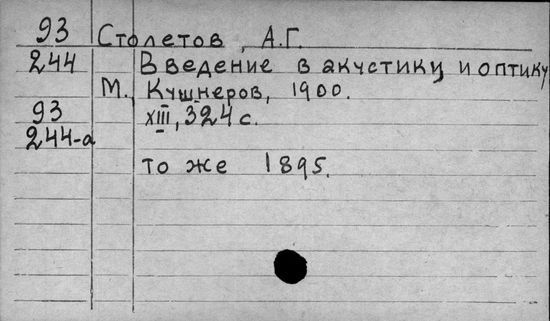 93 Столетов, А.Г.
244 Введение в акустику и оптику
М., Кушнеров, 1900.
93 XIII, 324 с.
244-а
то же 1895.